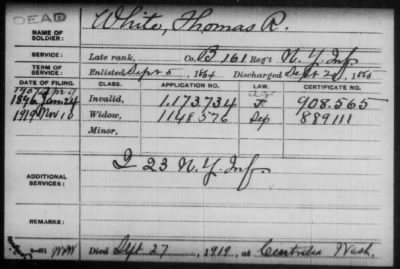 DEAD
NAME OF SOLDIER: White, Thomas R.
SERVICE: Late rank, Co. B 161 Reg't N.Y. Inf.
TERM OF SERVICE: Enlisted Sept 5, 1864 Discharged Sept 20, 1865
DATE OF FILING. CLASS. APPLICATION NO. LAW. CERTIFICATE NO.
1896 Jan 24 Invalid, 1.173.734 908.565
1919 Nov 10 Widow, 1148576 Dep 889111
Minor,
ADDITIONAL SERVICES: I 23 N.Y. Inf.
REMARKS:
Died Sept. 27, 1919, at Centralia Wash.